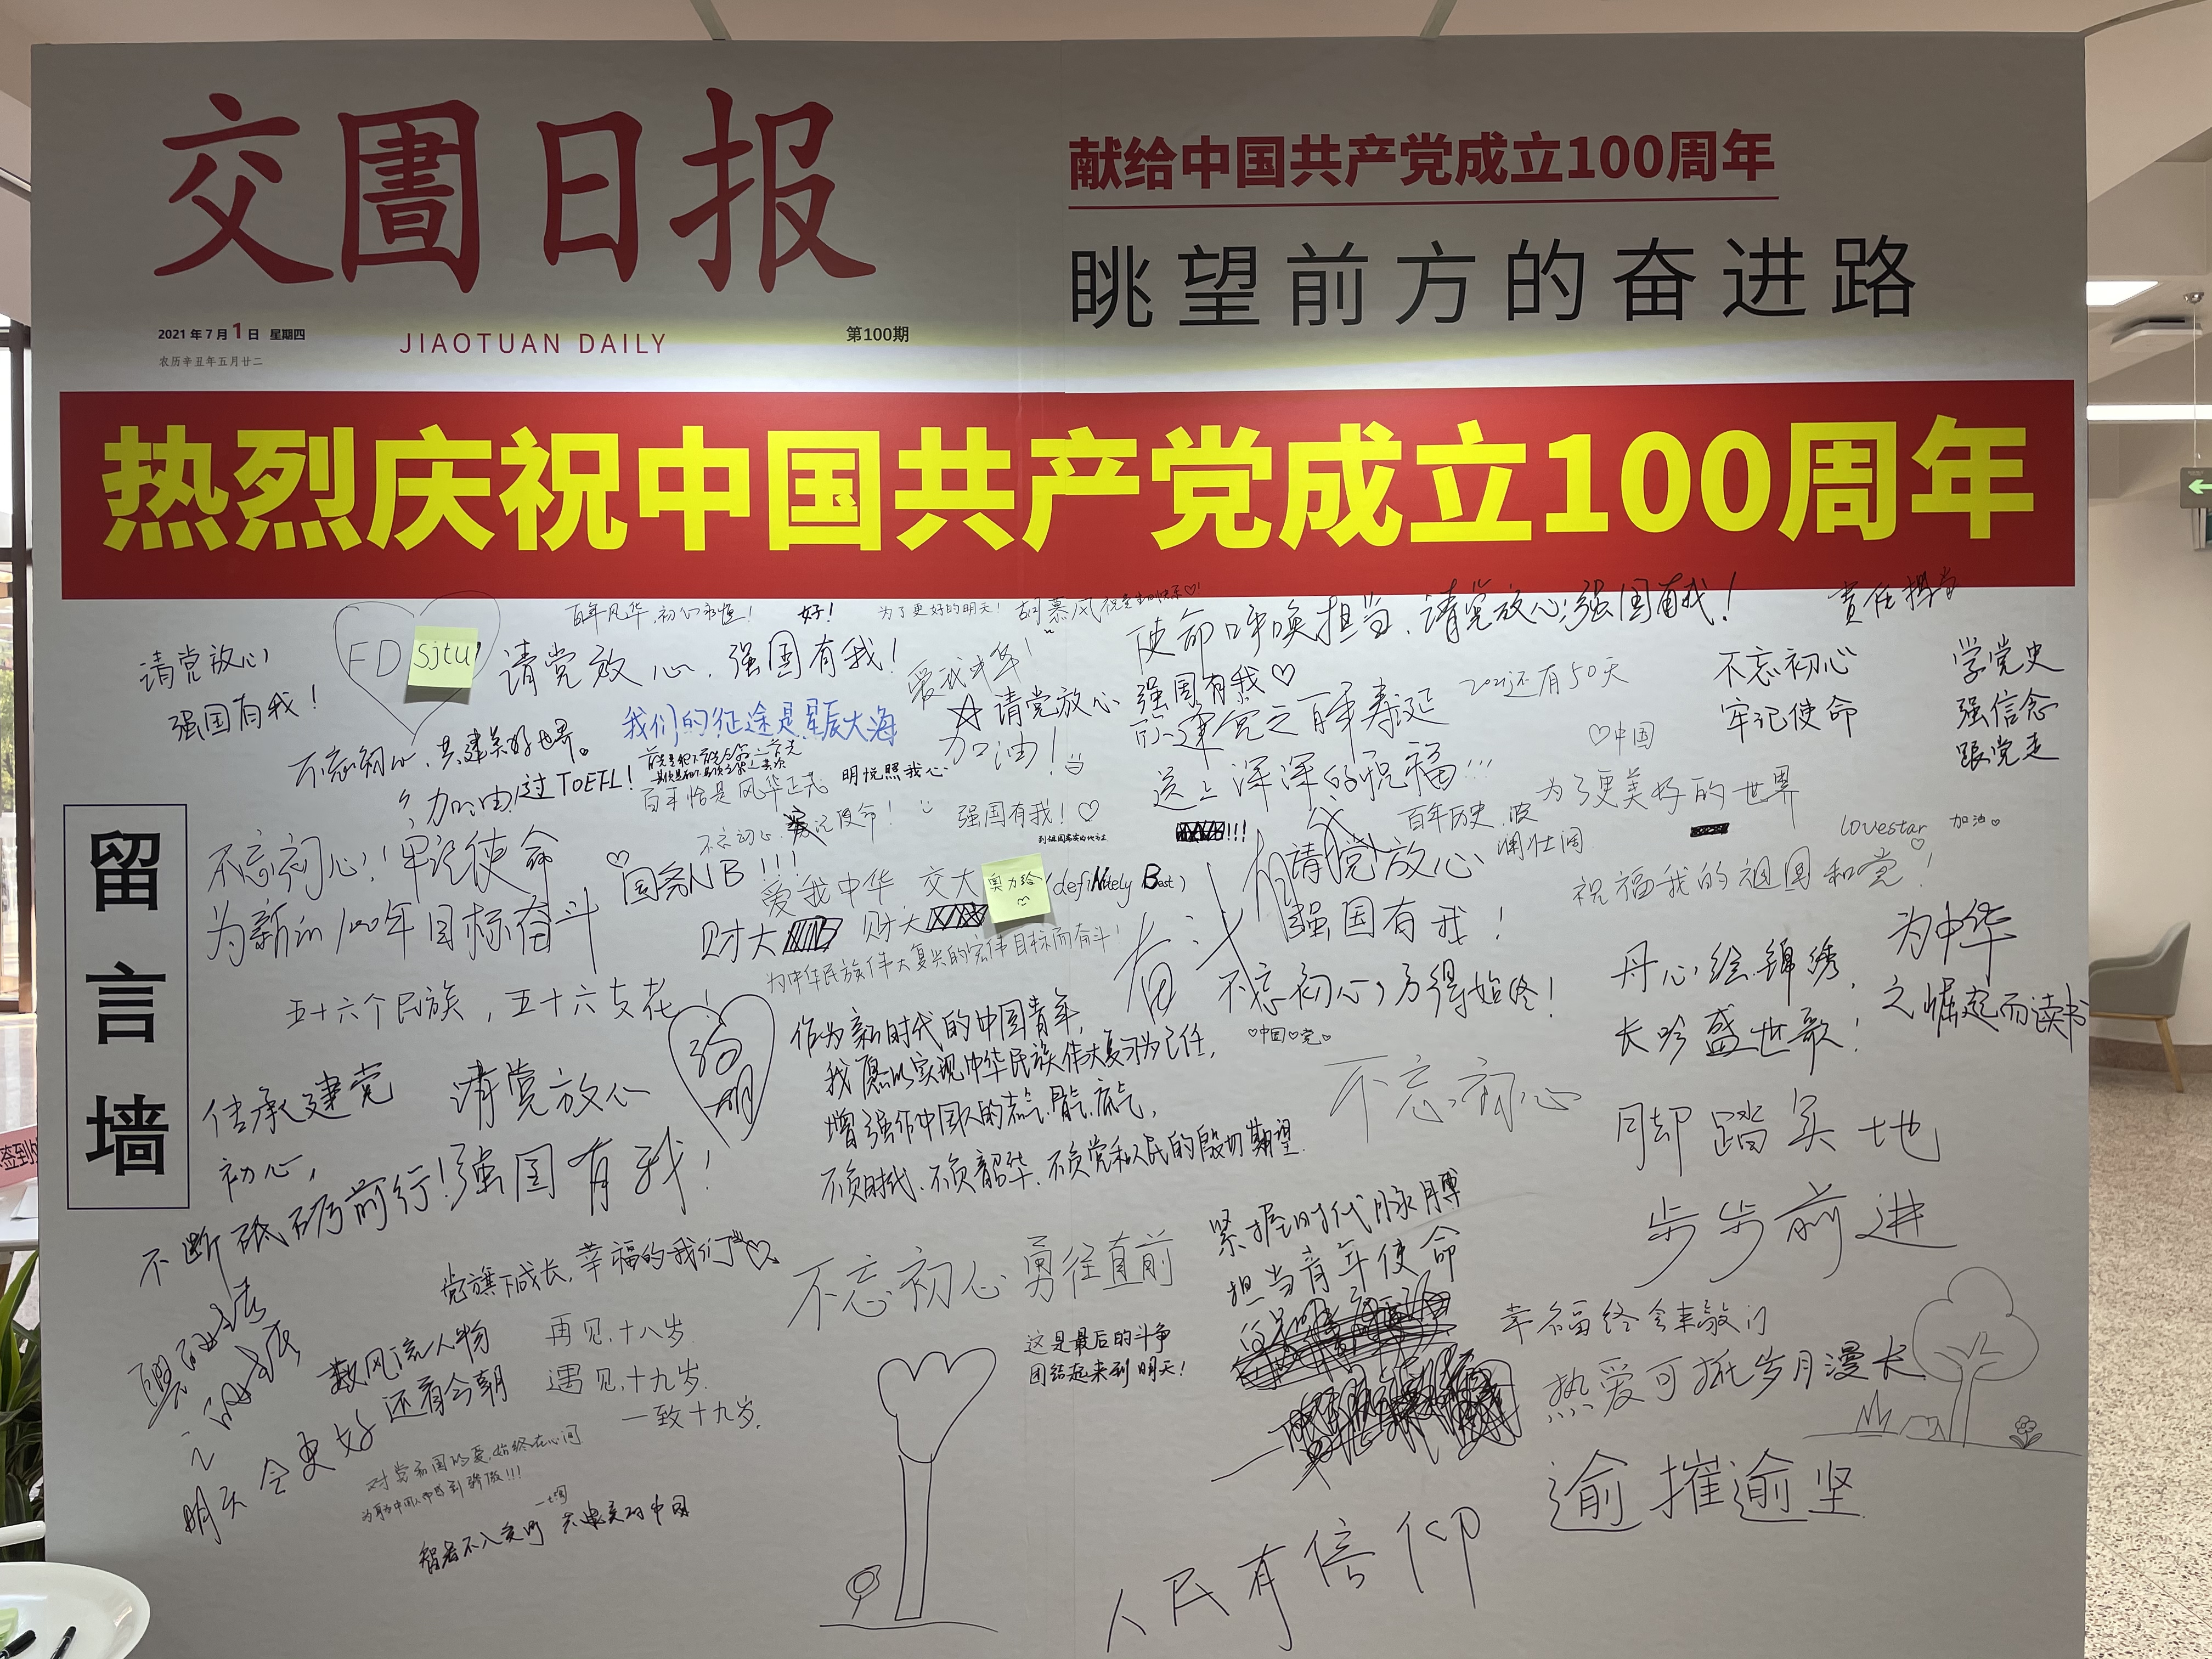 交圖日报
献给中国共产党成立100周年
眺望前方的奋进路
2021年7月1日 星期四
农历辛丑年五月廿二
JIAOTUAN DAILY
第100期
热烈庆祝中国共产党成立100周年
留言墙
百年风华,初心永恒!
好!
为了更好的明天!
使命呼唤担当,请党放心,强国有我!
责任担当
请党放心
强国有我!
FD
sjtu
请党放心,强国有我!
爱我中华!
请党放心 强国有我♡
2021还有50天
不忘初心
牢记使命
学党史
强信念
跟党走
我们的征途是星辰大海
加油!
建党之百年寿诞
送上深深的祝福!!!
♡中国
不忘初心,共建美好世界。
加油!过TOEFL!
百年恰是风华正茂
明悦照我心
为了更美好的世界
不忘初心
记使命!
强国有我!♡
百年历史,波
澜壮阔
lovestar
加油♡
不忘初心!牢记使命
为新的100年目标奋斗
国务NB!!!
爱我中华
交大
奥力给
(defiNitely Best)
财大
财大
请党放心
强国有我!
祝福我的祖国和党!
为中华民族伟大复兴的宏伟目标而奋斗!
奋斗
有我
不忘初心,方得始终!
♡中国♡党♡
丹心绘锦绣,
长吟盛世歌!
为中华
之崛起而读书
五十六个民族,五十六支花!
作为新时代的中国青年,
我愿以实现中华民族伟大复兴为己任,
增强作中国人的志气、骨气、底气,
不负时代、不负韶华、不负党和人民的殷切期望.
不忘初心
传承建党
初心,
不断砥砺前行!
请党放心
强国有我!
脚踏实地
步步前进
党旗下成长,幸福的我们♡
不忘初心 勇往直前
紧握时代脉搏
担当青年使命
这是最后的斗争
团结起来到明天!
数风流人物
还看今朝
再见,十八岁.
遇见,十九岁.
一致十九岁.
明天会更好
对党和国的爱,始终在心间
智者不入爱河
幸福终会来敲门
热爱可抵岁月漫长
逾摧逾坚
人民有信仰